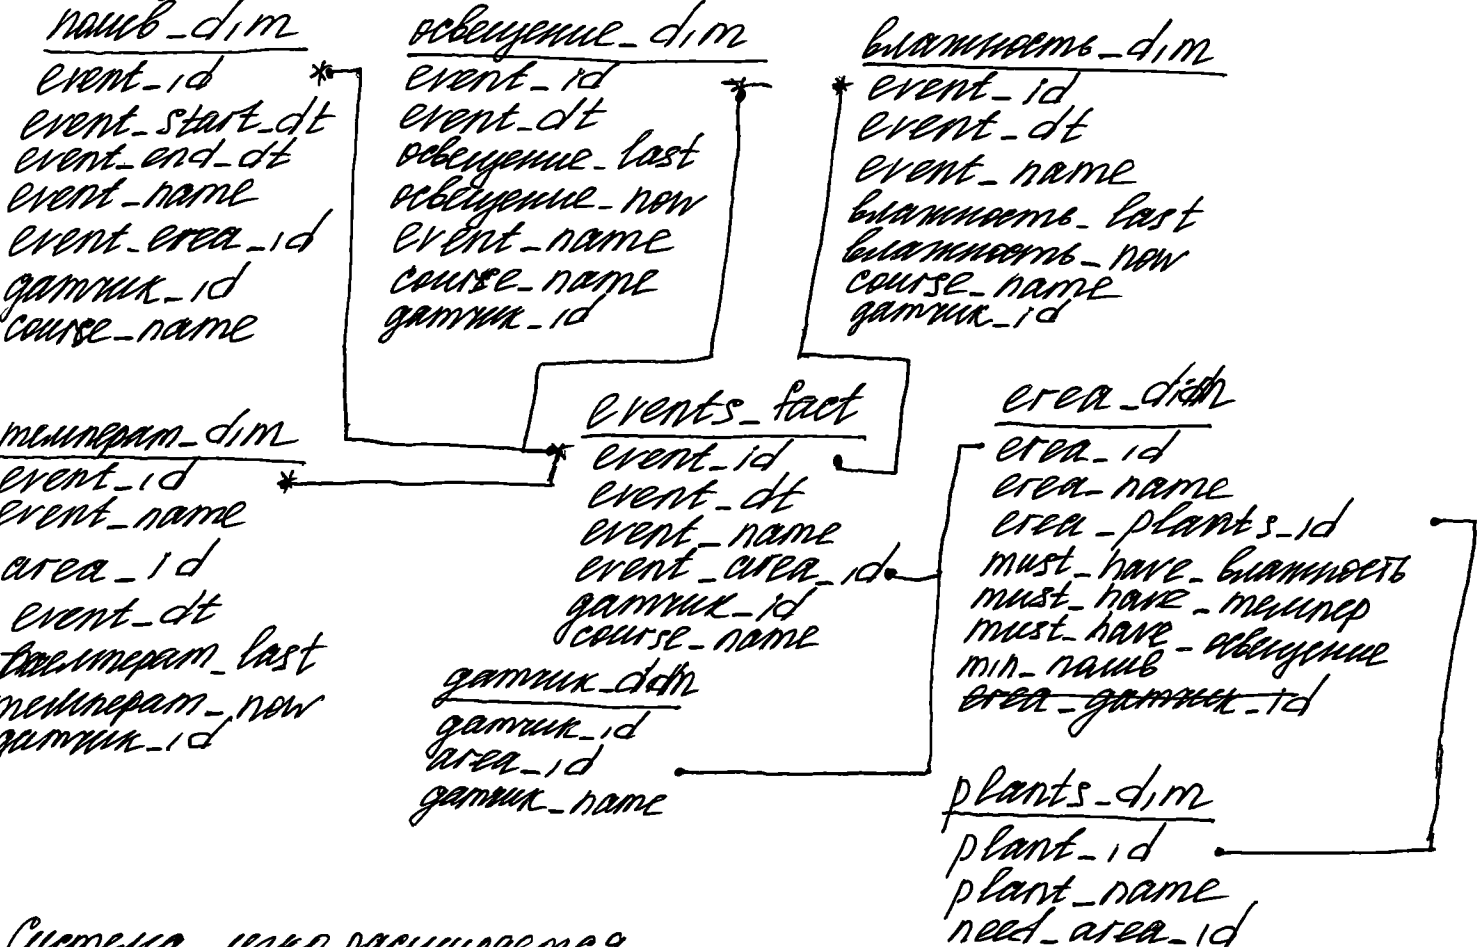 полив_dim
event_id
event_start_dt
event_end_dt
event_name
event_erea_id
датчик_id
course_name
освещение_dim
event_id
event_dt
освещение_last
освещение_now
event_name
course_name
датчик_id
влажность_dim
event_id
event_dt
event_name
влажность_last
влажность_now
course_name
датчик_id
температ_dim
event_id
event_name
area_id
event_dt
температ_last
температ_now
датчик_id
events_fact
event_id
event_dt
event_name
event_area_id
датчик_id
course_name
датчик_dim
датчик_id
area_id
датчик_name
erea_dim
erea_id
erea_name
erea_plants_id
must_have_влажность
must_have_темпер
must_have_освещение
min_полив
erea_датчик_id
plants_dim
plant_id
plant_name
need_area_id
Система легко расширяется